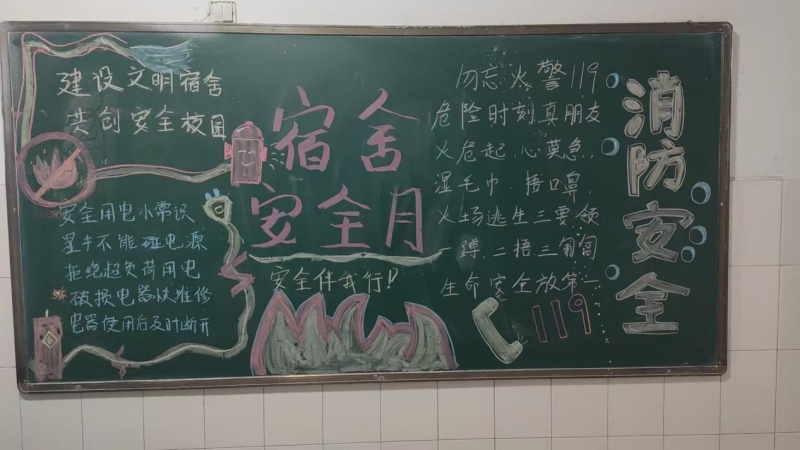 建设文明宿舍
共创安全校园
安全用电小常识
湿手不能碰电源
拒绝超负荷用电
破损电器快维修
电器使用后及时断开
宿舍
安全月
安全伴我行!
勿忘火警119
危险时刻真朋友
火危起,心莫急,
湿毛巾,捂口鼻,
火场逃生三要领
一蹲、二捂三匍匐
生命安全放第一
119
消防安全